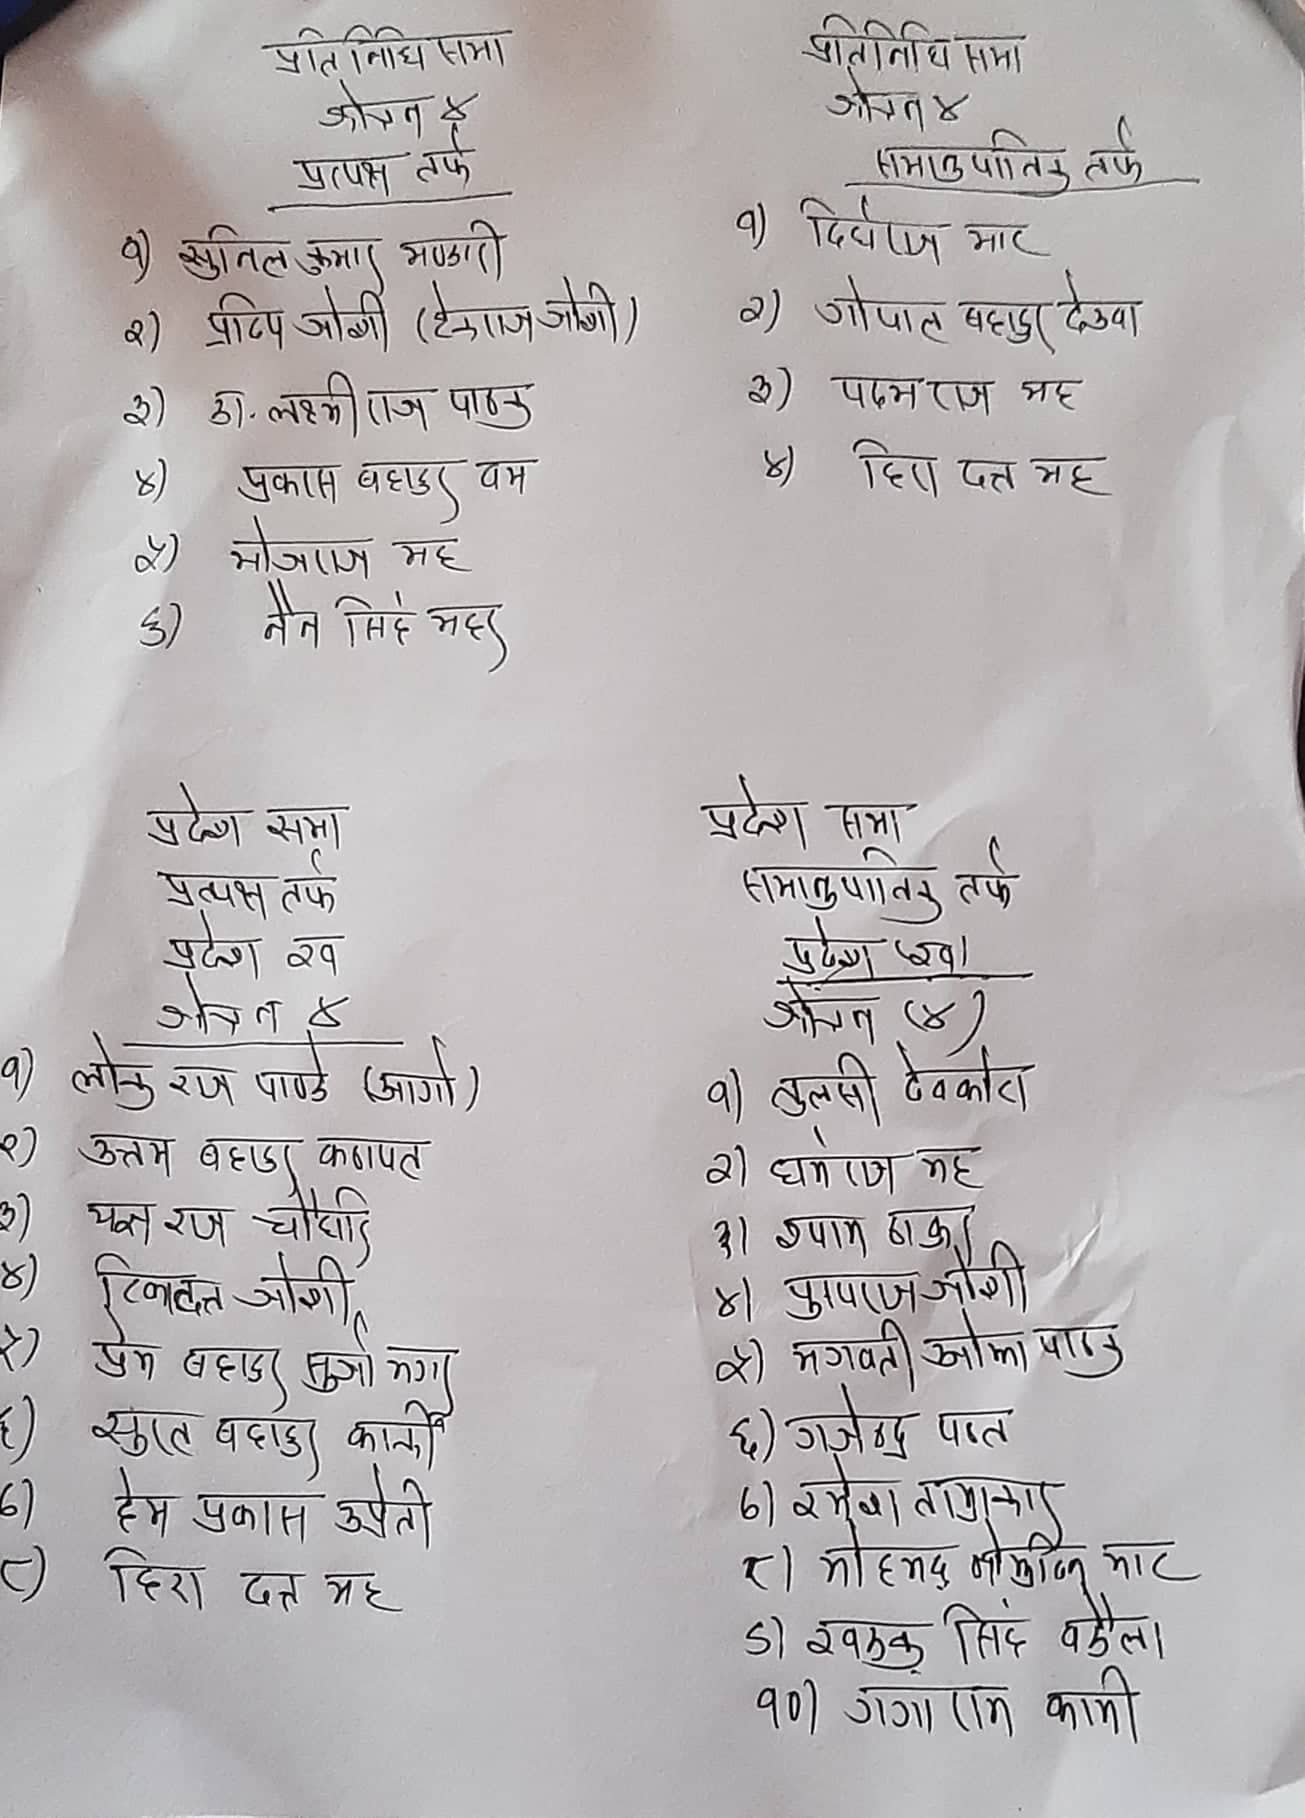 प्रतिनिधि सभा
क्षेत्र नं ४
प्रत्यक्ष तर्फ
१) सुनिल कुमार भण्डारी
२) प्रदिप जोशी (टेकराज जोशी)
३) डा. लक्ष्मी राज पाठक
४) प्रकास बहादुर बम
५) भोजराज भट्ट
६) नैन सिंह महर
प्रतिनिधि सभा
क्षेत्र नं ४
समानुपातिक तर्फ
१) दिर्घराज भाट
२) गोपाल बहादुर देउवा
३) पदम राज भट्ट
४) हिरा दत्त भट्ट
प्रदेश सभा
प्रत्यक्ष तर्फ
प्रदेश ख
क्षेत्र नं ४
१) लोक राज पाण्डे (आगो)
२) उत्तम बहादुर कठायत
३) यज्ञ राज चौधरि
४) टिकादत्त जोशी
५) प्रेम बहादुर भुर्जा मगर
६) सुरत बहादुर कार्की
७) हेम प्रकास उप्रेती
८) हिरा दत्त भट्ट
प्रदेश सभा
समानुपातिक तर्फ
प्रदेश (ख)
क्षेत्र नं (४)
१) तुलसी देवकोटा
२) धर्मराज भट्ट
३) श्याम ठाकुर
४) पुष्पराज जोशी
५) भगवती ओझा पाठक
६) गजेन्द्र पन्त
७) रमेश ताम्राकार
८) मोहमद भाट
९) खडक सिंह बडैला
१०) गगा राम कामी